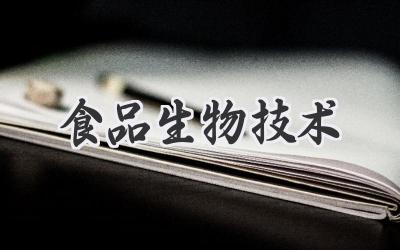 食品生物技术